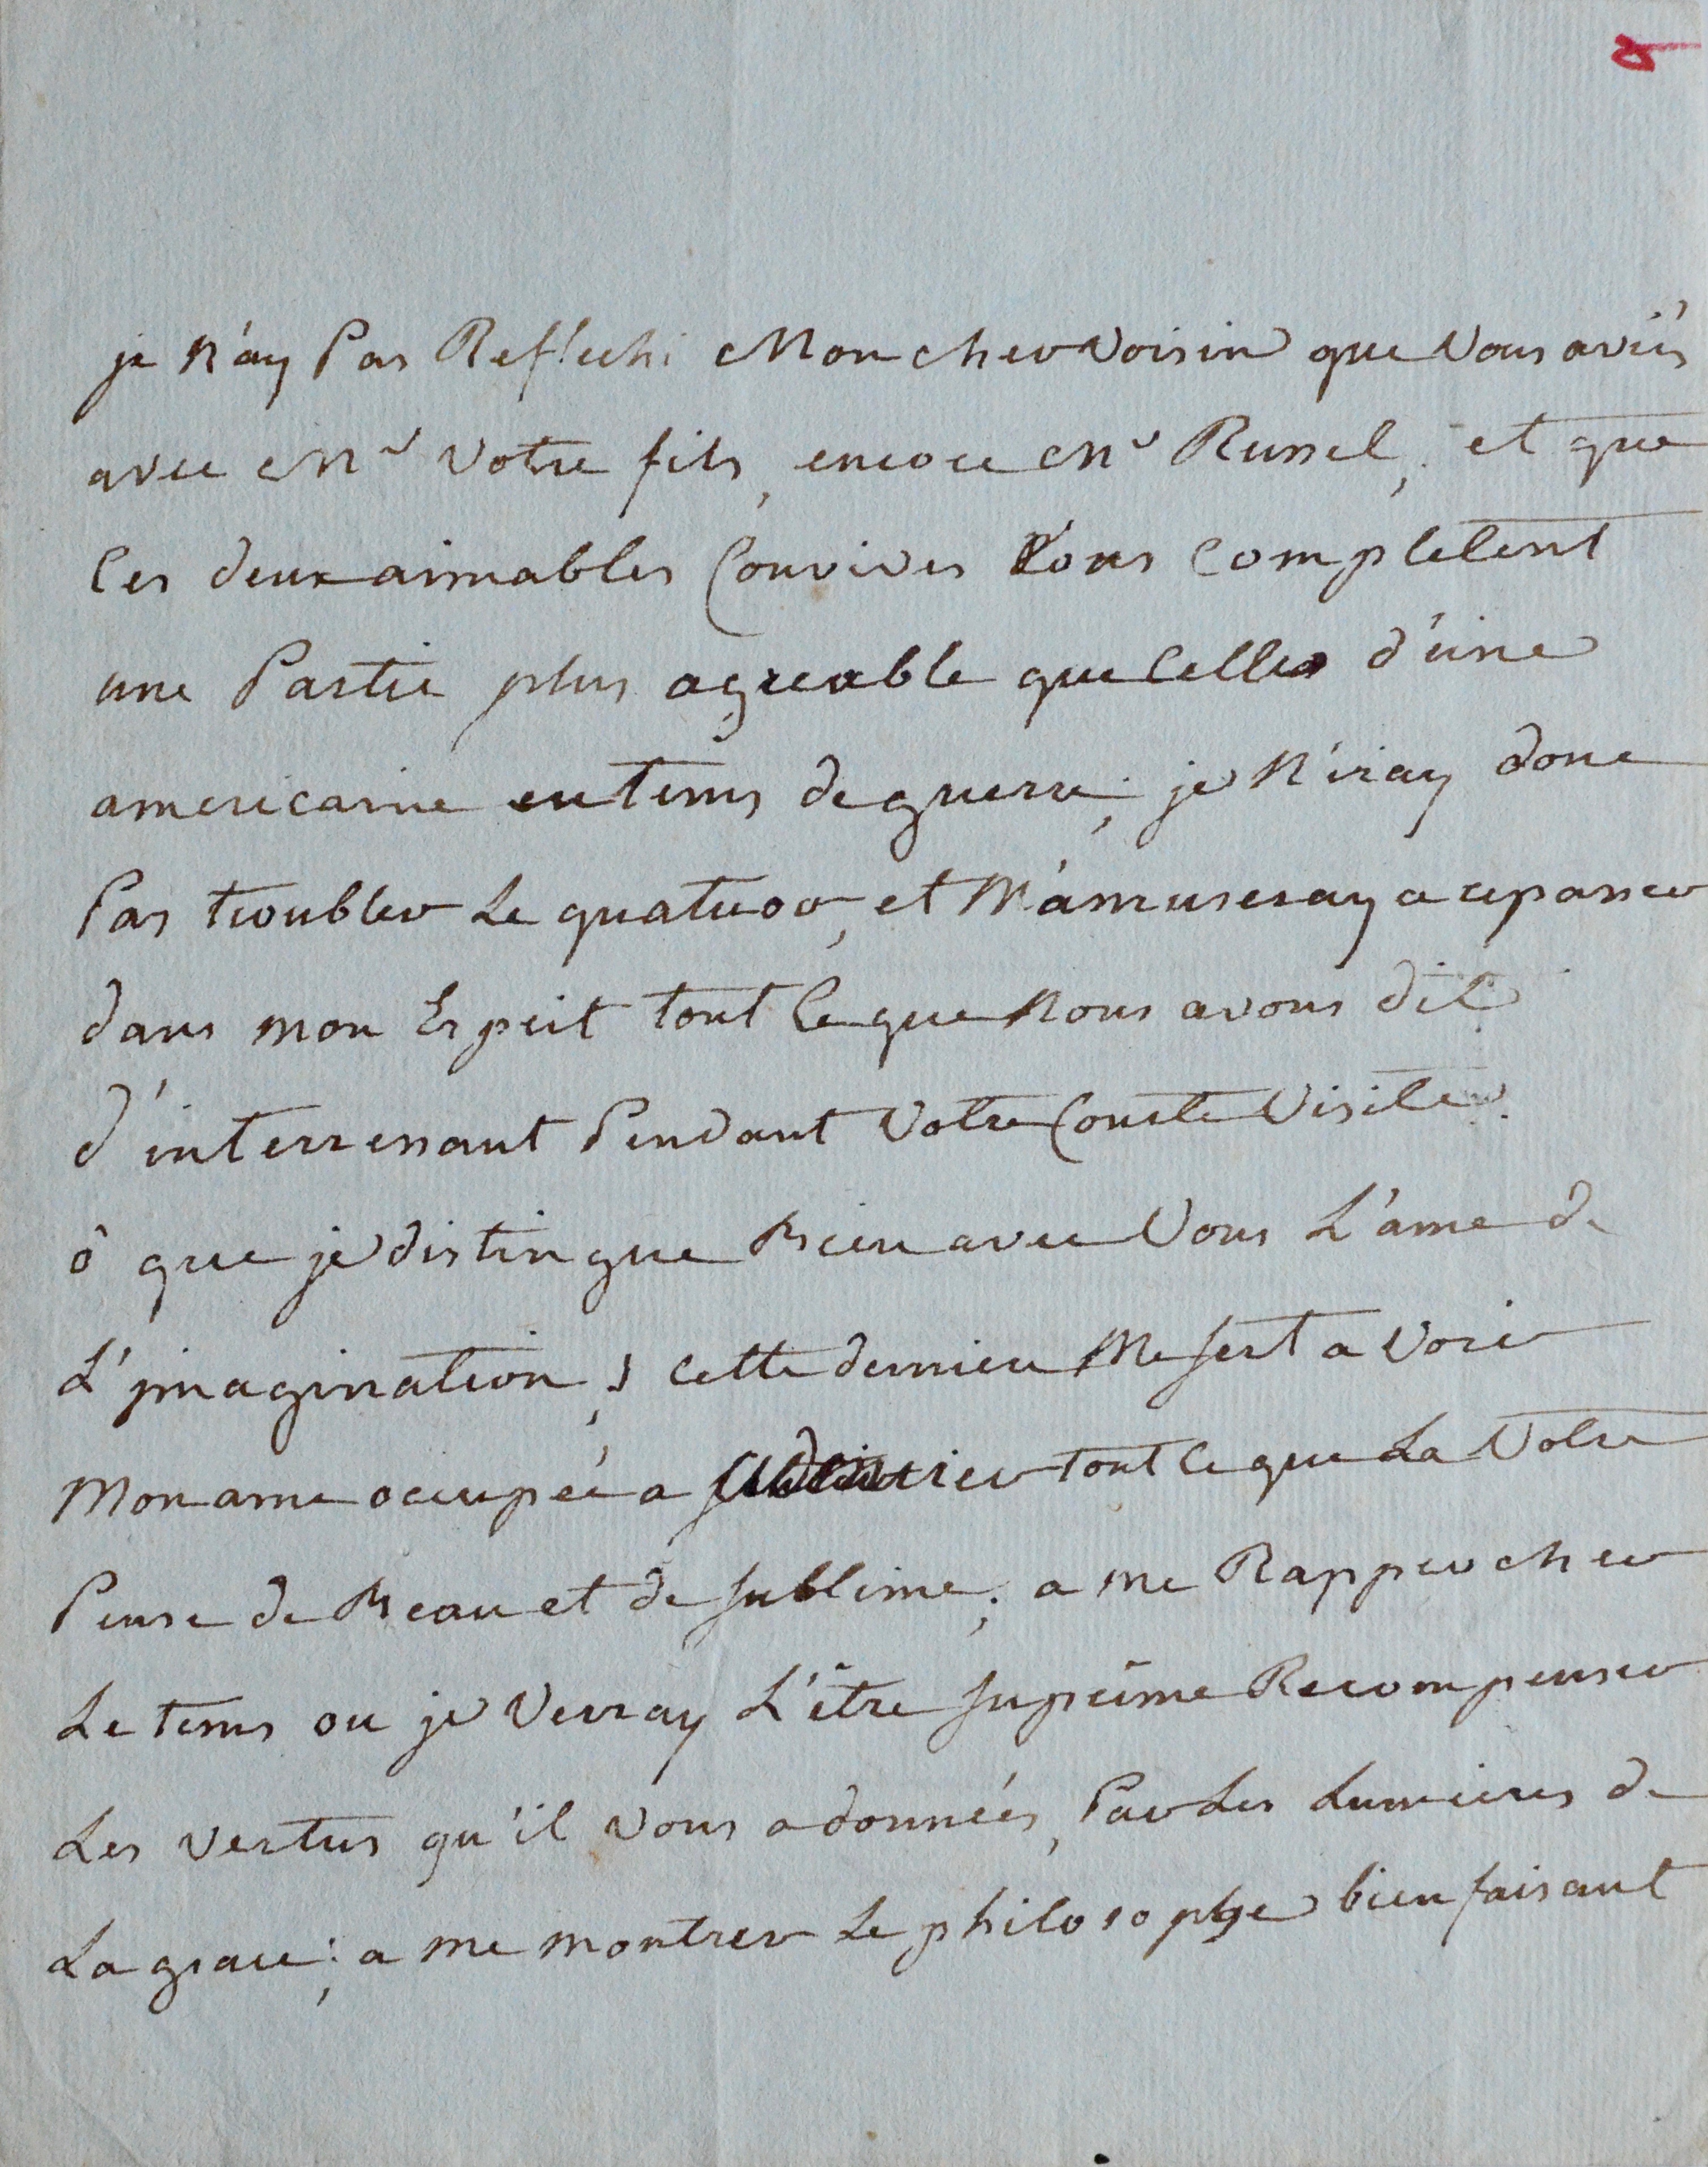 je n'ay Pas Reflechi Mon cher voisin que vous aviés
avec Mr votre fils, encore Mr Russel; et que
Ces deux aimables Convives vous completent
une Partie plus agreable que Celle d'une
americaine en tems de guerre; je n'iray donc
Pas troubler Le quatuor, et M'amuseray a repasser
dans mon Esprit tout Ce que Nous avons dit
d'interressant Pendant Votre Courte Visite.
ô que je distingue Bien avec Vous L'ame de
L'imagination; cette derniere Me sert a Voir
Mon ame occupée a tout Ce que La Votre
Pense de Beau et de sublime; a me Rapprocher
Le tems ou je Verray L'être suprême Recompenser
Les vertus qu'il vous a données, Par Les Lumieres de
La grace; a me montrer Le philosophe bienfaisant